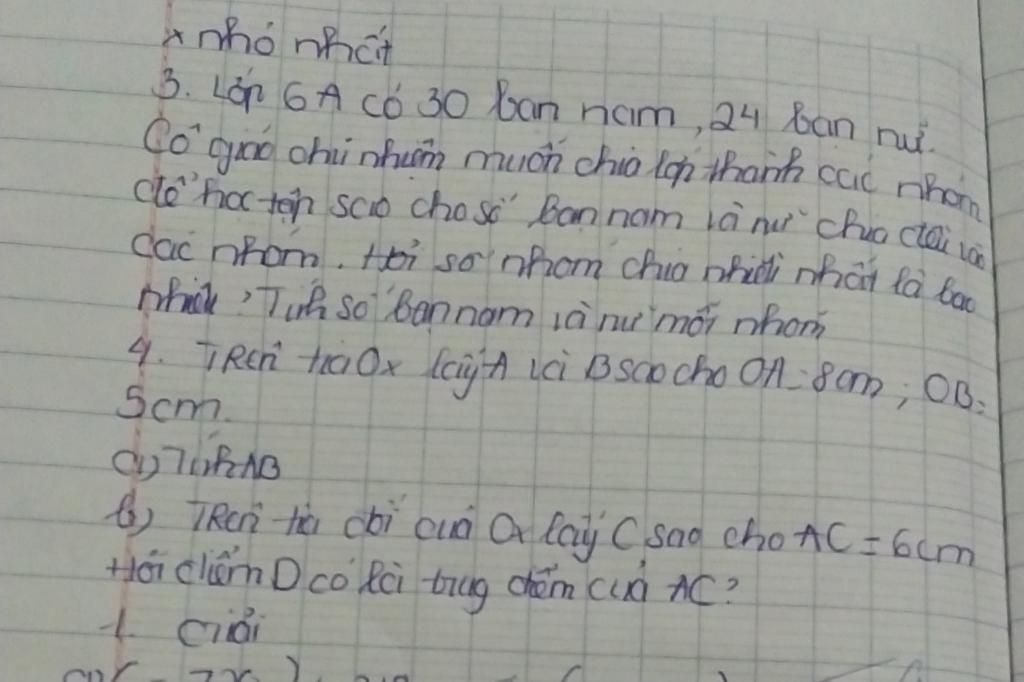 x nhỏ nhất
3. Lớp 6A có 30 bạn nam, 24 bạn nữ.
Cô giáo chủ nhiệm muốn chia lớp thành các nhóm
để học tập sao cho số bạn nam và nữ chia đều vào
các nhóm. Hỏi số nhóm chia nhiều nhất là bao
nhiêu? Tính số bạn nam và nữ mỗi nhóm
4. TRên tia Ox lấy A và B sao cho OA = 8cm; OB =
5cm.
a) Tính AB
b) TRên tia đối của Ox lấy C sao cho AC = 6cm
Hỏi điểm D có là trung điểm của AC?
1. Giải